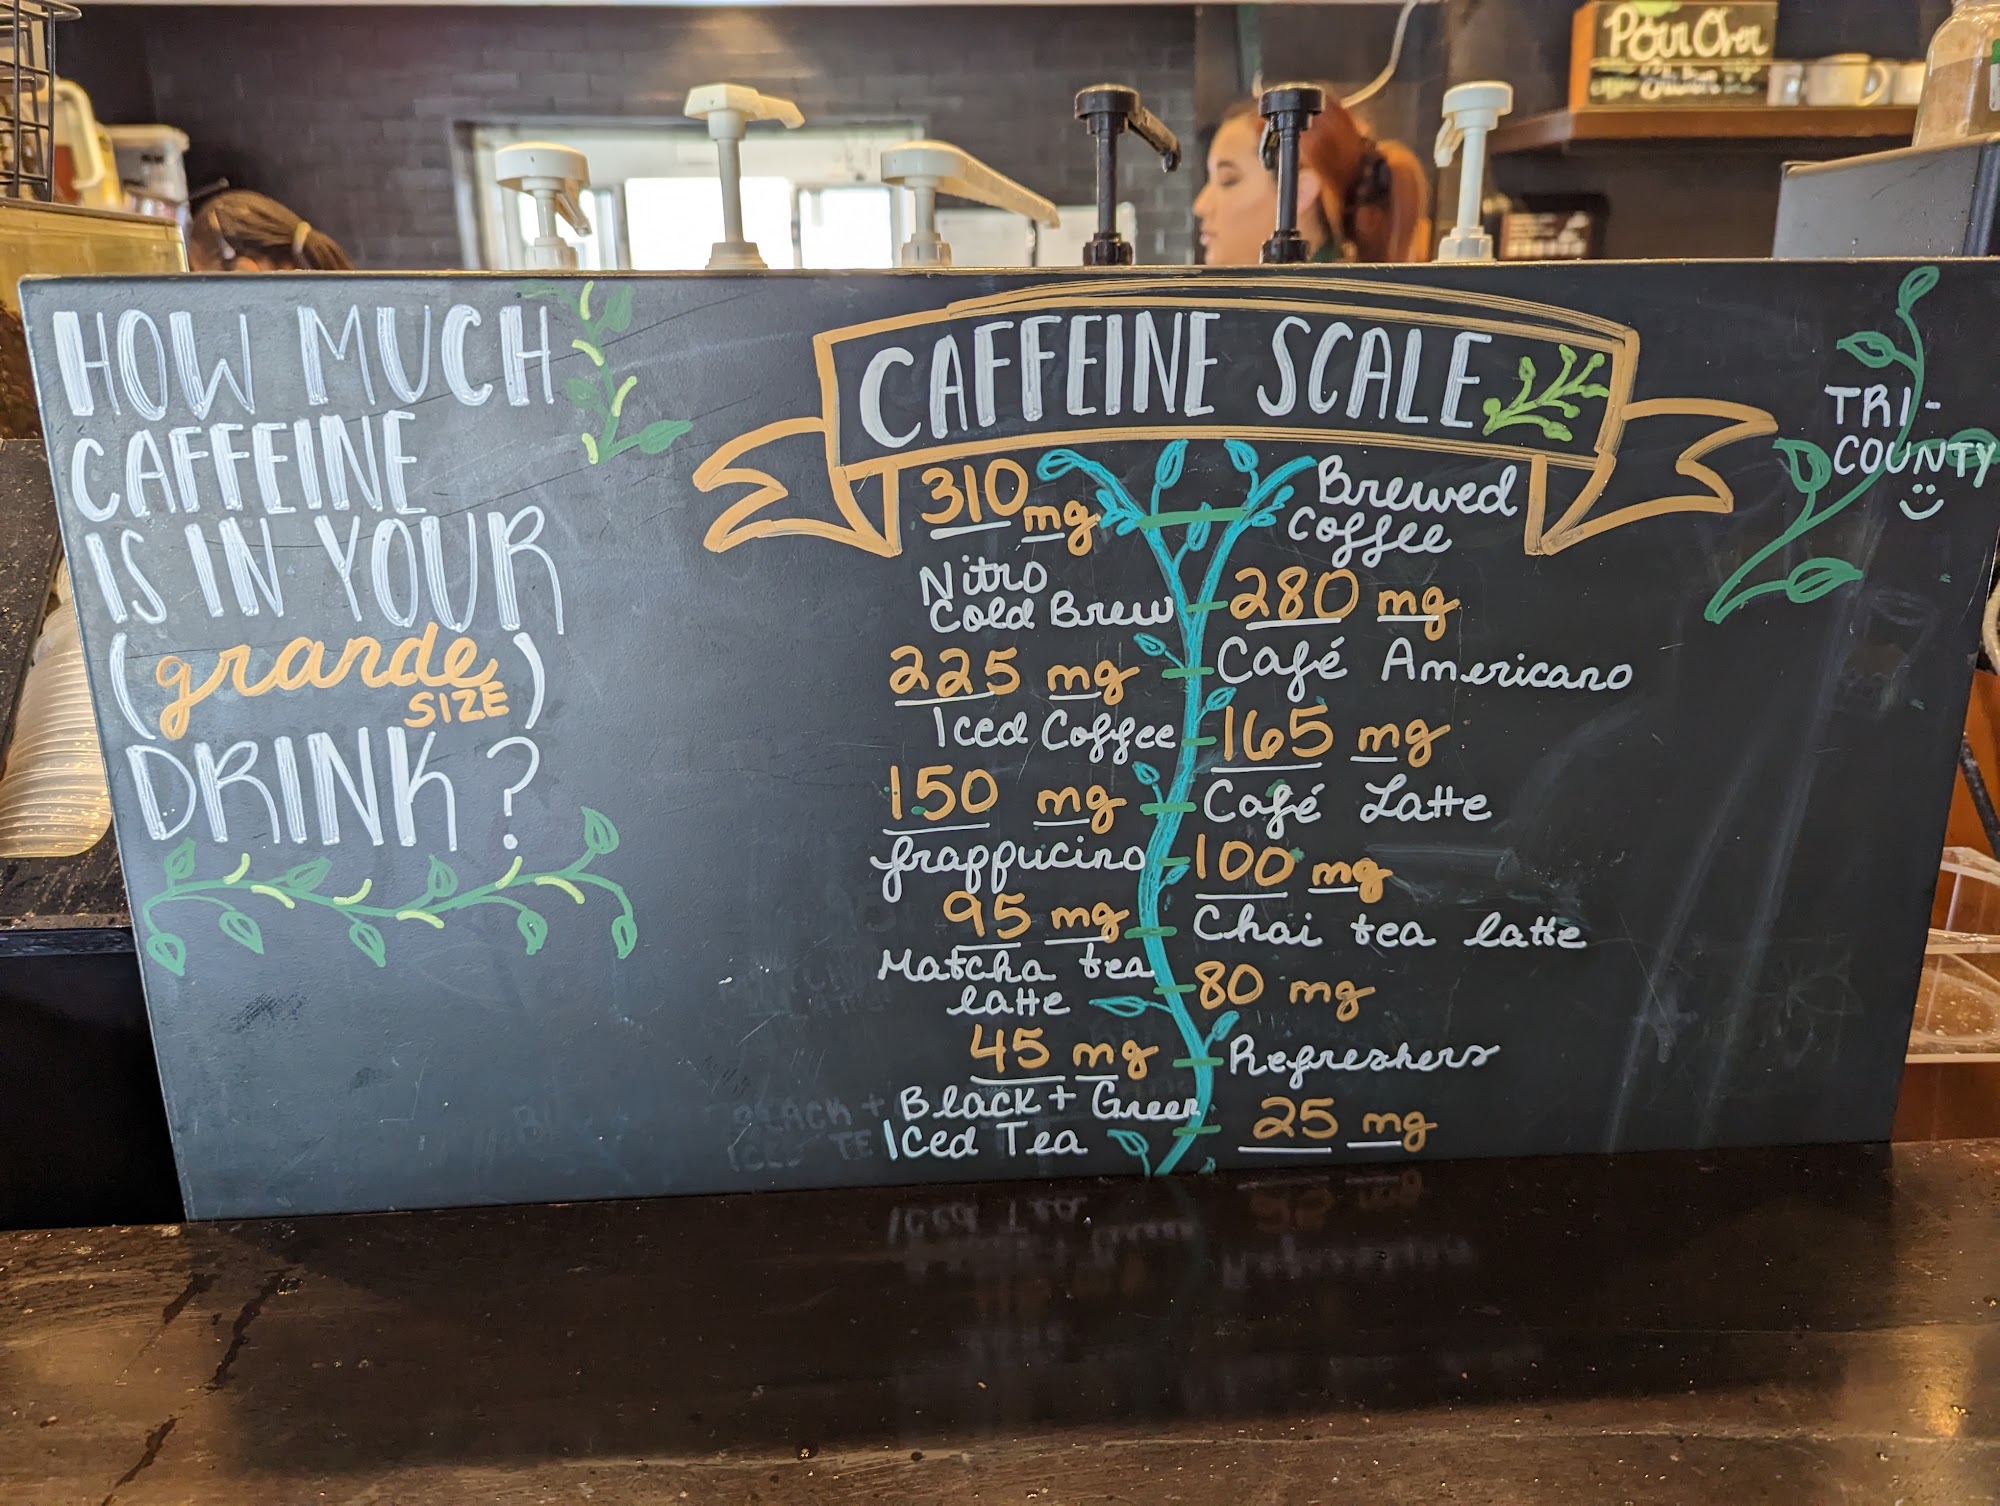 Pour Over
HOW MUCH
CAFFEINE
IS IN YOUR
(grande
SIZE)
DRINK?
CAFFEINE SCALE
310 mg
Brewed
Coffee
Nitro
Cold Brew
280 mg
225 mg
Café Americano
Iced Coffee
165 mg
150 mg
Café Latte
frappucino
100 mg
95 mg
Chai tea latte
Matcha tea
latte
80 mg
45 mg
Refreshers
Black + Green
Iced Tea
25 mg
TRI-
COUNTY